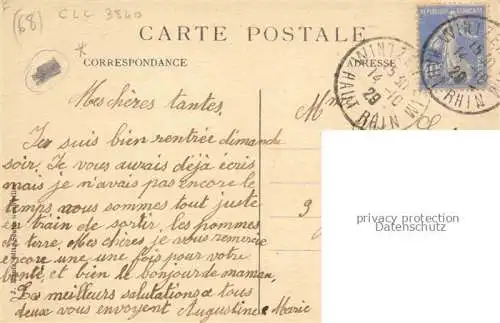 (68)
CLC 3840
CARTE POSTALE
CORRESPONDANCE
ADRESSE
REPUBLIQUE FRANCAISE
WINTZE
15 40
14 -10
29
HAUT RHIN
Mes chères tantes,
Je suis bien rentrée dimanche
soir. Je vous aurais déjà écris
mais je n'avais pas encore le
temps nous sommes tout juste
en train de sortir les pommes
de terre. Mes chères je vous remercie
encore une une fois pour votre
bonté et bien le bonjour de maman.
Les meilleurs salutations a tous
deux vous envoyent Augustine Marie
Mm
9
privacy protection
Datenschutz